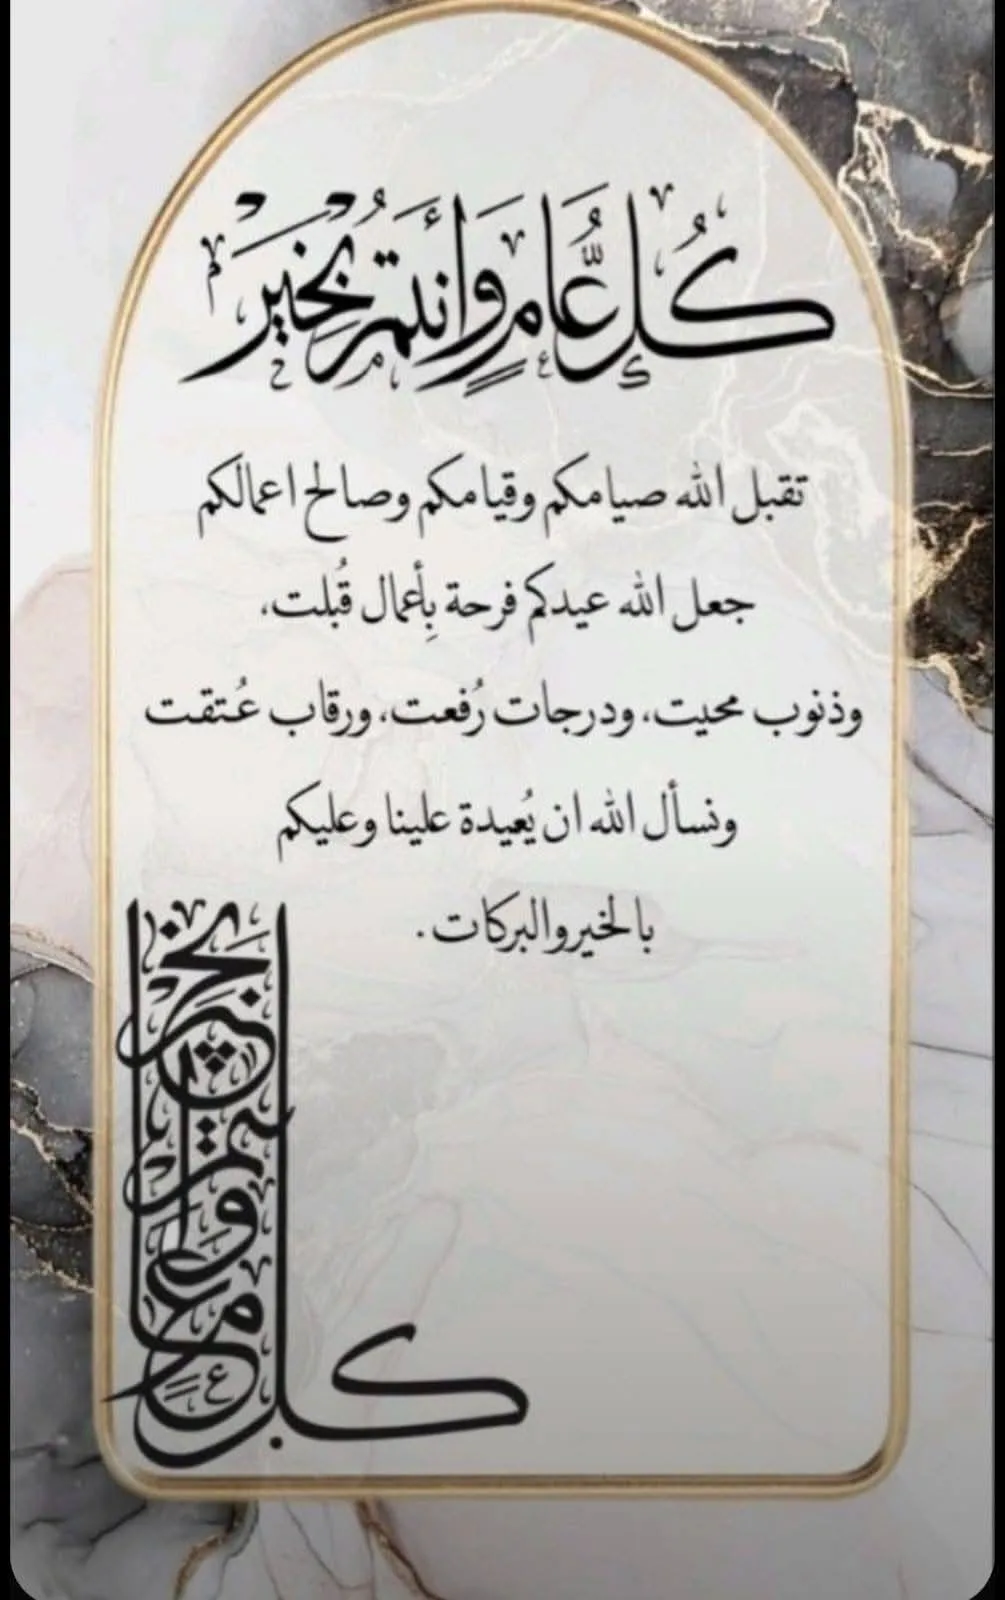 كُل عَّامٍ وَأنتمُ بِخَيرَ
تقبل الله صيامكم وقيامكم وصالح اعمالكم
جعل الله عيدكم فرحة بِأعمال قُبلت،
وذنوب محيت، ودرجات رُفعت، ورقاب عُتقت
ونسأل الله ان يُعيدة علينا وعليكم
بالخير والبركات .
كل عام وأنتم بخير